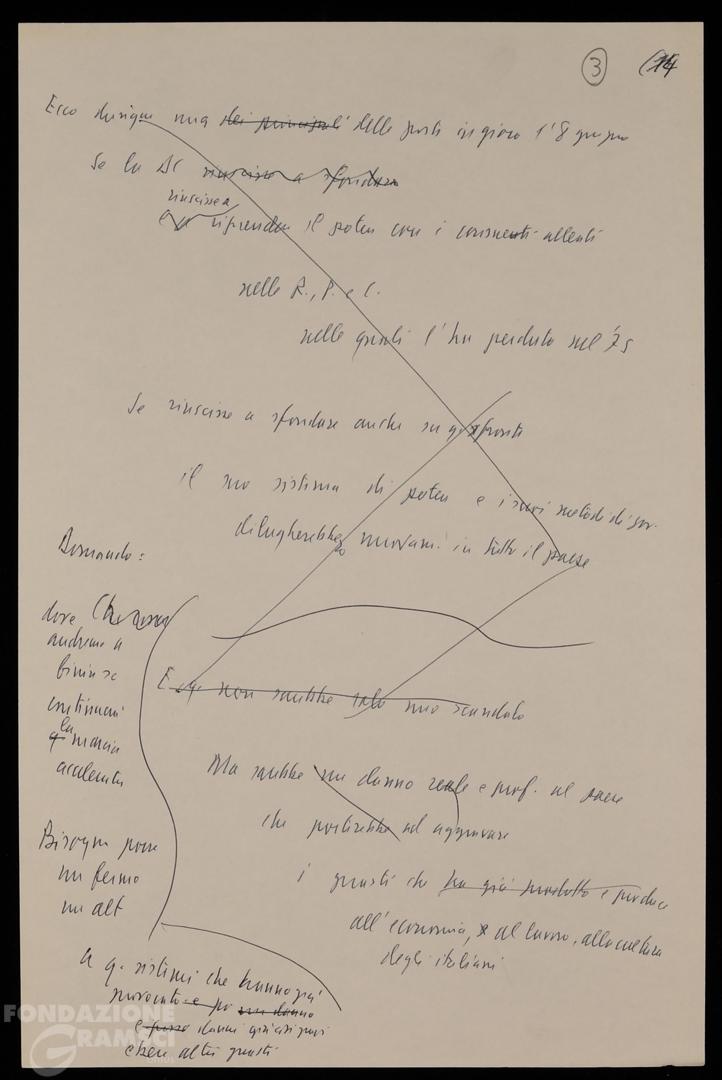 3 14
Ecco dunque una dei principali delle poste in gioco l'8 giugno
Se la DC riuscisse a sfondare
riuscisse a
riprendere il potere con i consueti alleati
nelle R., P. e C.
nelle quali l'ha perduto nel '75
Se riuscisse a sfondare anche su q. fronte
il suo sistema di potere e i suoi metodi di gov.
dilagherebbero nuovam. in tutto il paese
E q. non sarebbe solo uno scandalo
Ma sarebbe un danno reale e prof. al paese
che porterebbe ad aggravare
i guasti che ha già prodotto e produce
all'economia, al lavoro, alla cultura
degli italiani
Domando:
dove
andremo a
finire se
continua
la
q. marcia
accelerata
Bisogna porre
un fermo
un alt
a q. sistemi che hanno già
provocato e un danno
e danni
altri guasti
FONDAZIONE
GRAMSCI